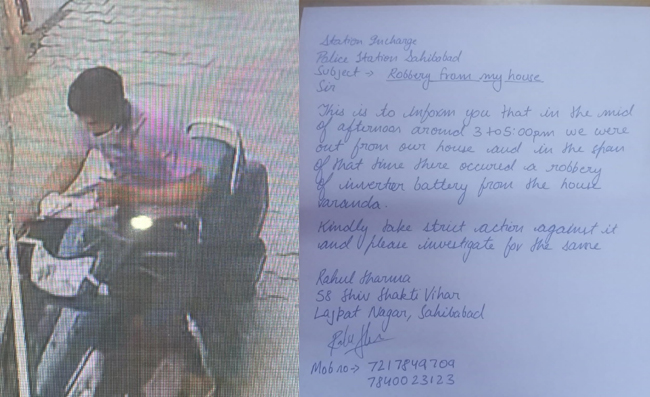 Station Incharge
Police Station Sahibabad
Subject → Robbery from my house
Sir
This is to inform you that in the mid
of afternoon around 3 to 5:00pm we were
out from our house and in the span
of that time there occured a robbery
of inverter battery from the house
varanda.
Kindly take strict action against it
and please investigate for the same
Rahul Sharma
58 Shiv Shakti Vihar
Lajpat Nagar, Sahibabad
Mob no → 7217849709
7840023123